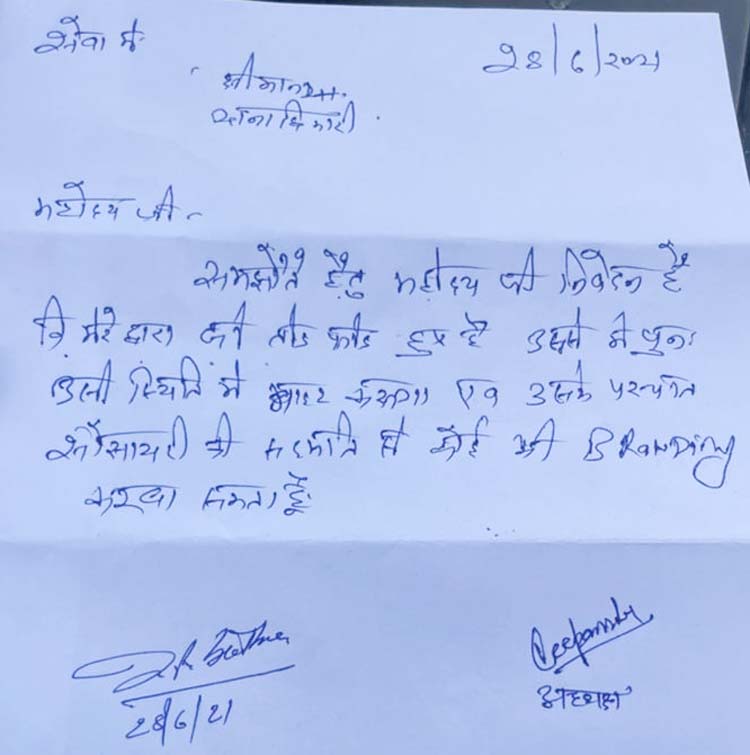 सेवा में
28/6/2021
श्रीमान
थानाधिकारी
महोदय जी
समझौते हेतु महोदय जी निवेदन है
कि मेरे द्वारा जो तोड फोड हुई है उसमे मे पुनः
उसी स्थिति मे करूगा एवं उसके पश्चात
सोसायटी की सहमति से कोई भी Branding
करवा सकता है
28/6/21
Deepanshu
अध्यक्ष